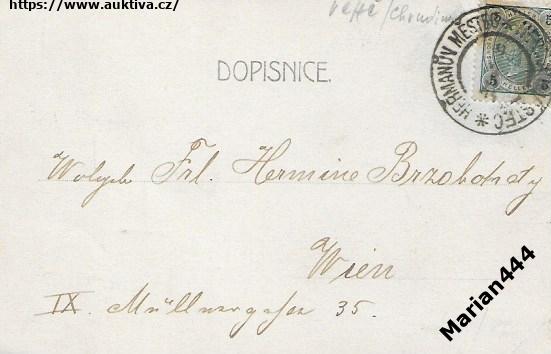 https://www.auktiva.cz/
DOPISNICE.
HEŘMANŮV MĚSTEC
5
Wolgeb Frl. Hermine Brzobohaty
Wien
IX. Müllnergasse 35.
Marian444